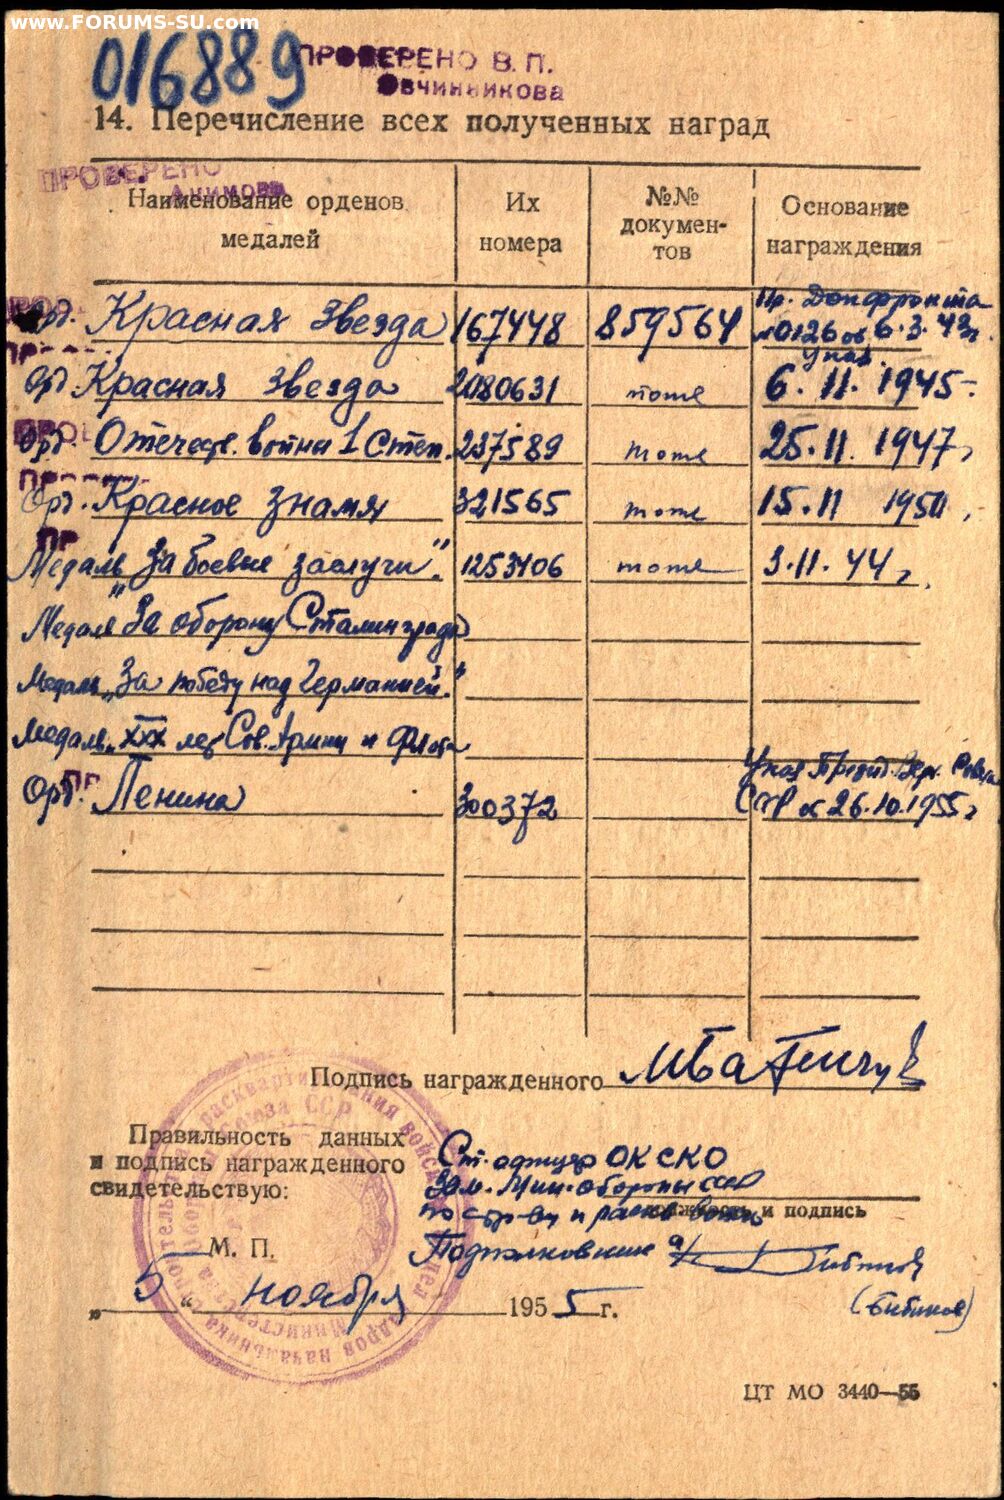 www.FORUMS-SU.com
016889
ПРОВЕРЕНО В. П.
Овчинникова
14. Перечисление всех полученных наград
ПРОВЕРЕНО
Акимова
Наименование орденов медалей
Их номера
№№ докумен-тов
Основание награждения
Орд. Красная Звезда 167448 859564 Пр. Донфронта
№0126 от 6.3.43г.
Указ.
Орд Красная звезда 2180631 тоже 6.11.1945г.
Орд. Отечеств. войны 1 Степ. 237589 тоже 25.11.1947г
Орд. Красное Знамя 321565 тоже 15.11 1950г.
Медаль "За боевые заслуги". 1253406 тоже 3.11.44г.
Медаль "За оборону Сталинграда
Медаль "За победу над Германией."
Медаль "XXX лет Сов. Армии и Флота
Указ Презид. Верх. Совета
Орд. Ленина 300372 СССР от 26.10.1955г
Подпись награжденного
Правильность данных
и подпись награжденного
свидетельствую:
Ст. офицер ОКСКО
Зам. Мин. обороны СССР
по стр-ву и раскв. войск
должность и подпись
Подполковник
М. П.
„5" ноября 1955 г.
(Бибиков)
ЦТ МО 3440—55